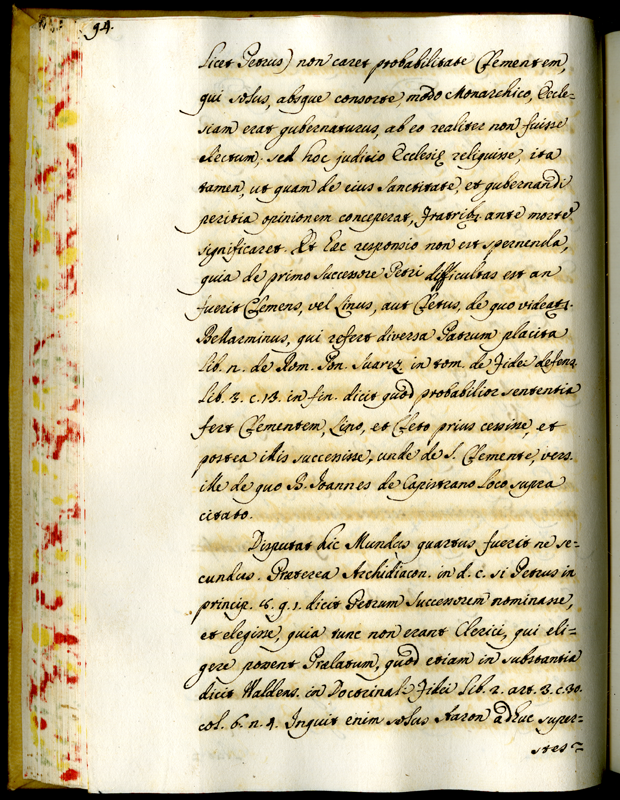 94.
licet Petrus) non caret probabilitate Clementem,
qui solus, absque consorte, modo Monarchico, Eccle=
siam erat gubernaturus, ab eo realiter non fuisse
electum; sed hoc juditio Ecclesię reliquisse, ita
tamen, ut quam de eius Sanctitate, et gubernandi
peritia opinionem conceperat, Fratribꝫ ante mortē
significaret. Et haec responsio non est spernenda,
quia de primo Successore Petri difficultas est an
fuerit Clemens, vel Linus, aut Cletus, de quo videatꝫ.
Bellarminus, qui refert diversa Patrum placita
lib. n. de Rom. Pon. Suarez in tom. de Fidei defens.
lib. 3. c. 13. in fin. dicit quod probabilior sententia
fert Clementem, Lino, et Cleto prius cessisse, et
postea illis successisse, unde de S. Clemente, vers.
ille de quo B. Joannes de Capistrano loco supra
citato.
Disputat hic Mundus quartus fuerit ne se=
cundus. Præterea Archidiacon. in d. c. si Petrus in
princip. 8. q. 1. dicit Petrum Successorem nominasse,
et elegisse, quia tunc non erant Clerici, qui eli=
gere possent Prælatum, quod etiam in substantia
dicit Waldens. in Doctrinal: Fidei lib. 2. art. 3. c. 30.
col. 6. n. 4. Inquit enim solus Aaron adhuc super=
stes